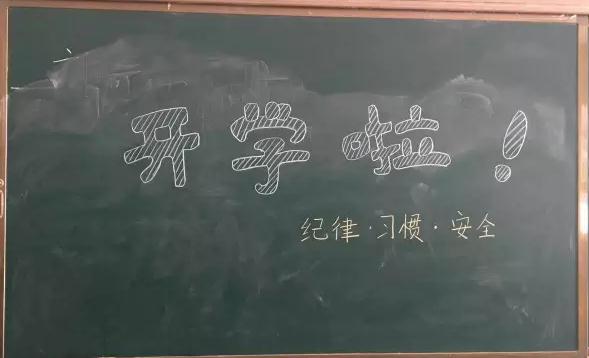 开学啦！
纪律·习惯·安全